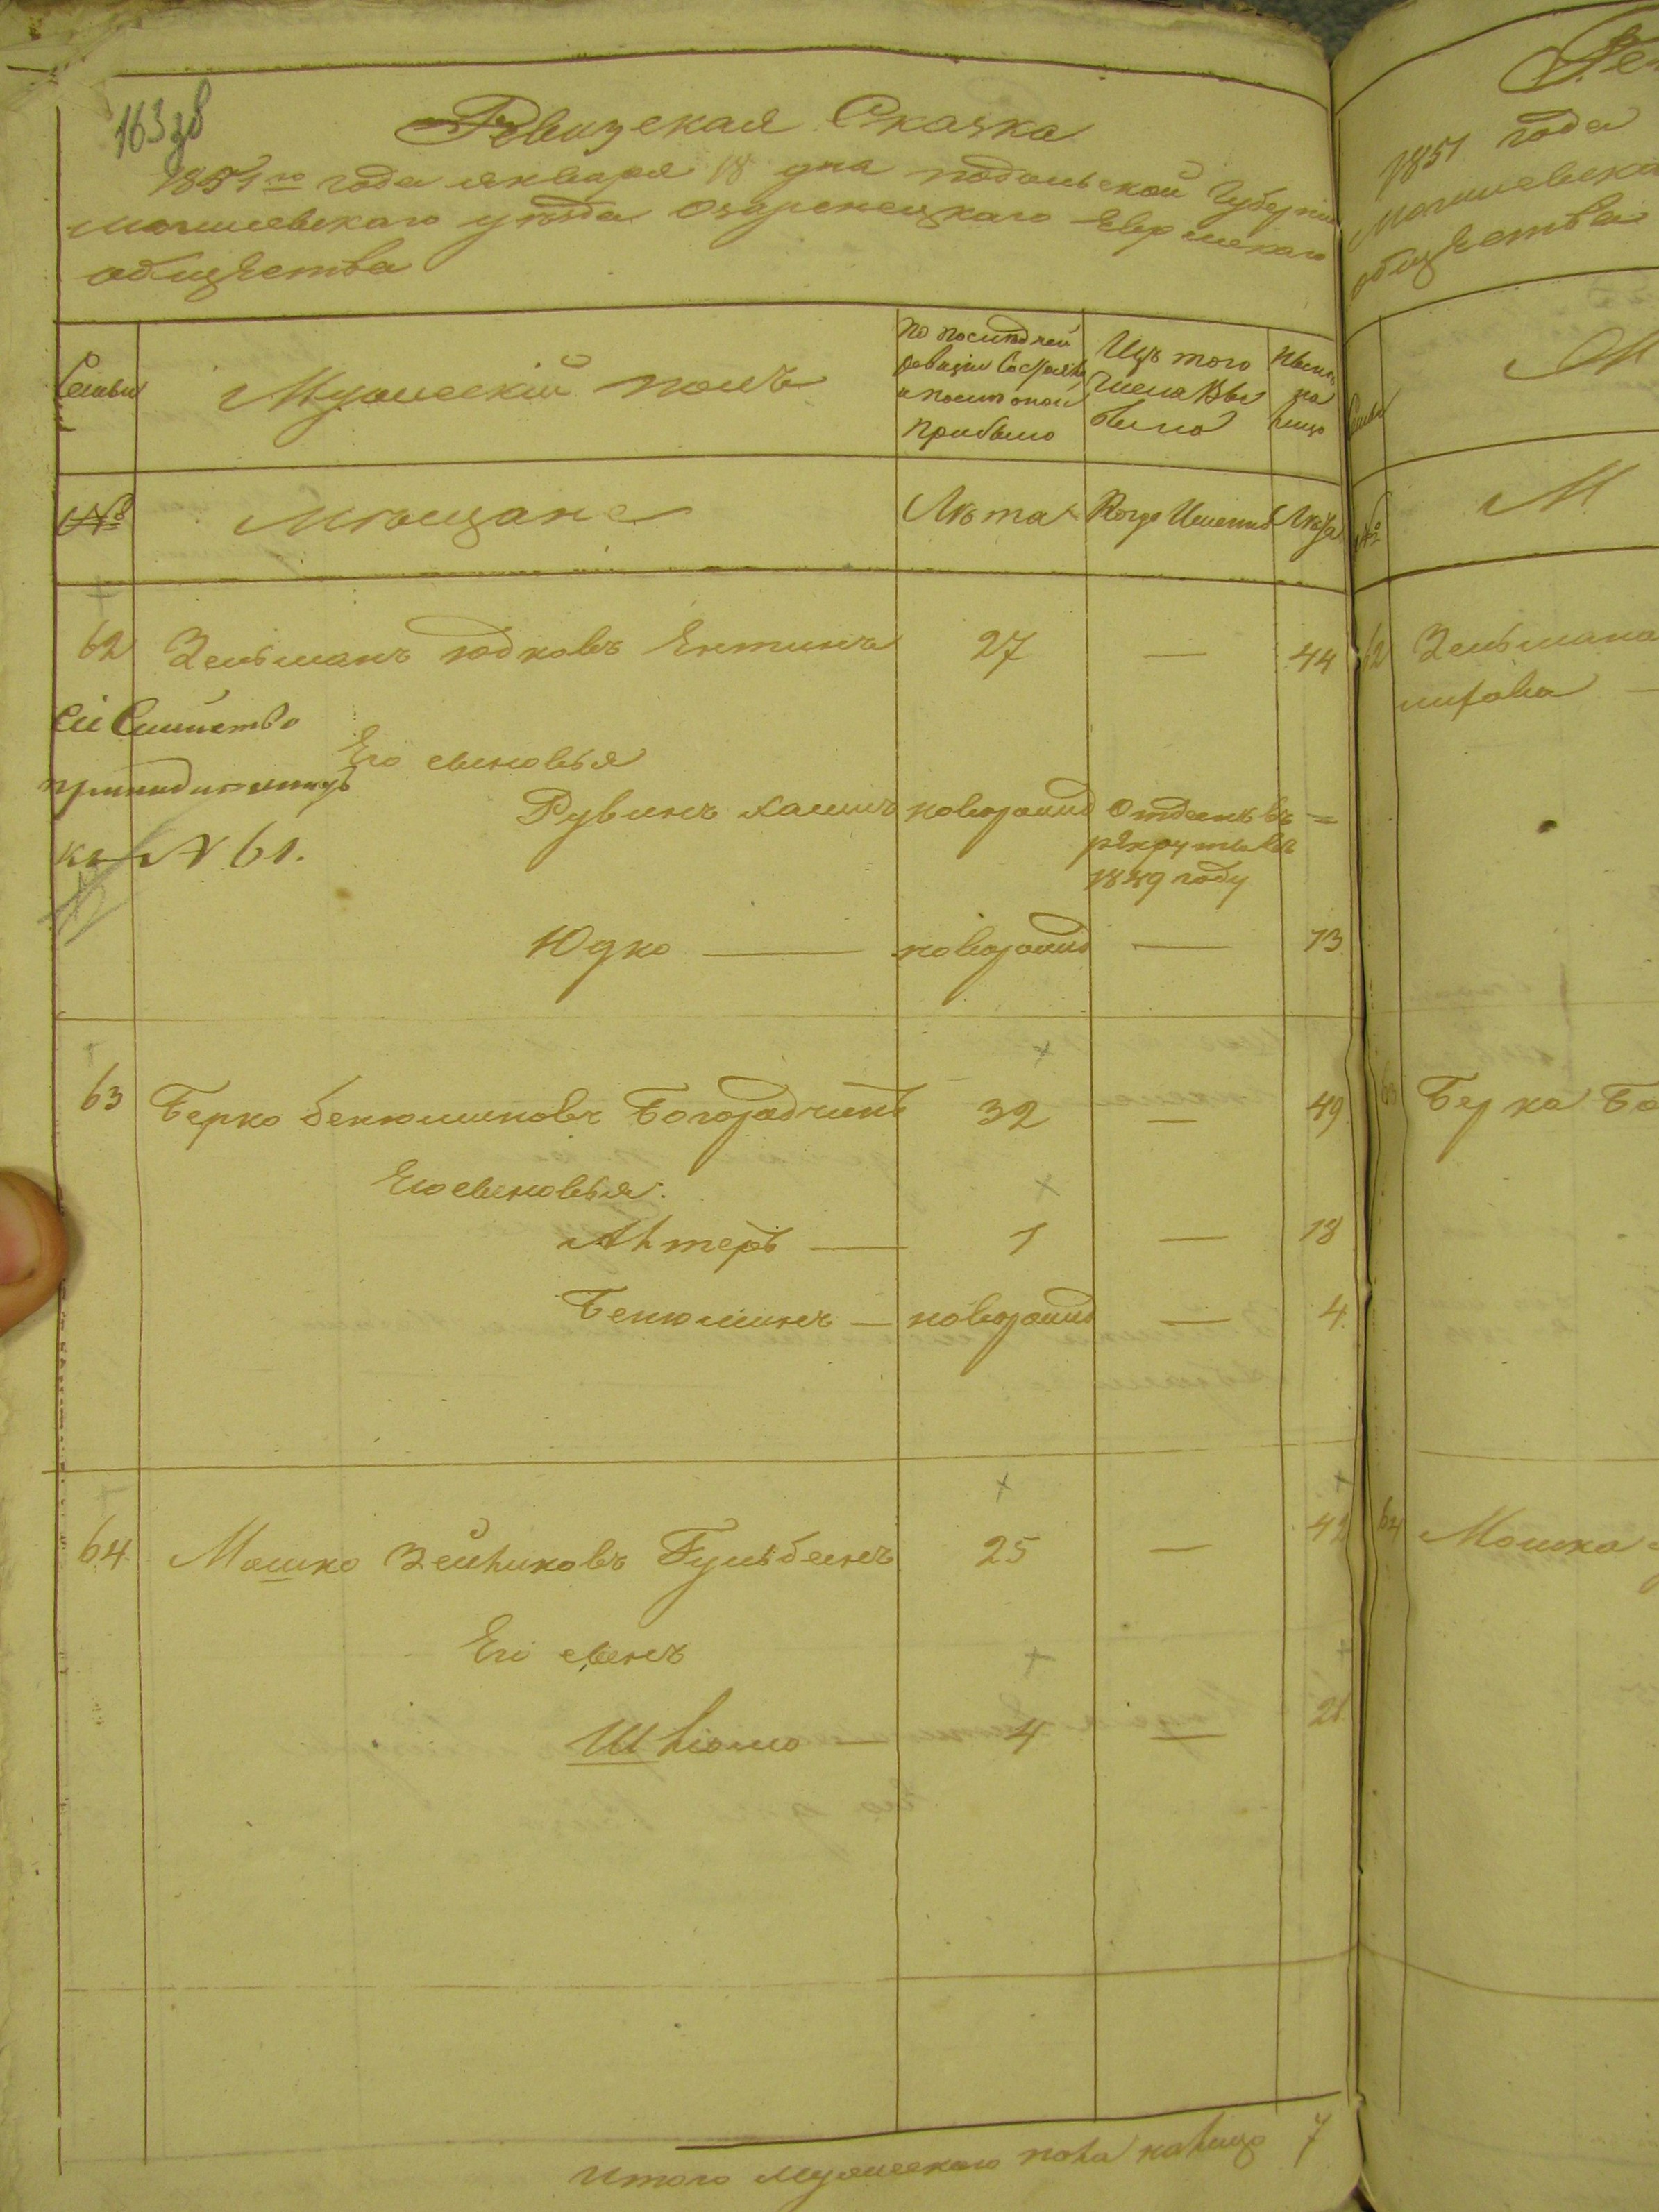 163 зв
Ревизская Сказка
1851го года января 18 дня подольской Губерніи
могилевскаго уѣзда Озаренецкаго Еврейскаго
общества
Семьи
Мужескій полъ
по последней
ревизіи состояло
и после оной
прибыло
Изъ того
числа вы
было
Ныне
на
лицо
№
Мѣщане
Лѣта
Когда Именно
Лѣта
62 Зельманъ Юдковъ Ентинъ 27 — 44
Сіе Семейство
принадлежитъ
къ № 61.
Его сыновья
Рувинъ Хаимъ новорожд Отданъ въ =
рекруты въ
1849 году
Юдко — новорожд — 13
63 Берко Бенюминовъ Богорадчинъ 32 — 49
Его сыновья.
Ахтеръ — 1 — 18
Бенюминъ — новорожд — 4.
64 Мошко Зейликовъ Гульбейнъ 25 — 42
Его сынъ
Шліомо — 4 — 21
Итого мужескаго пола налицо 7
1851 года
могилевска
общества
М
Семьи
№
М
62 Зельмана
63 Берка Бо
64 Мошка